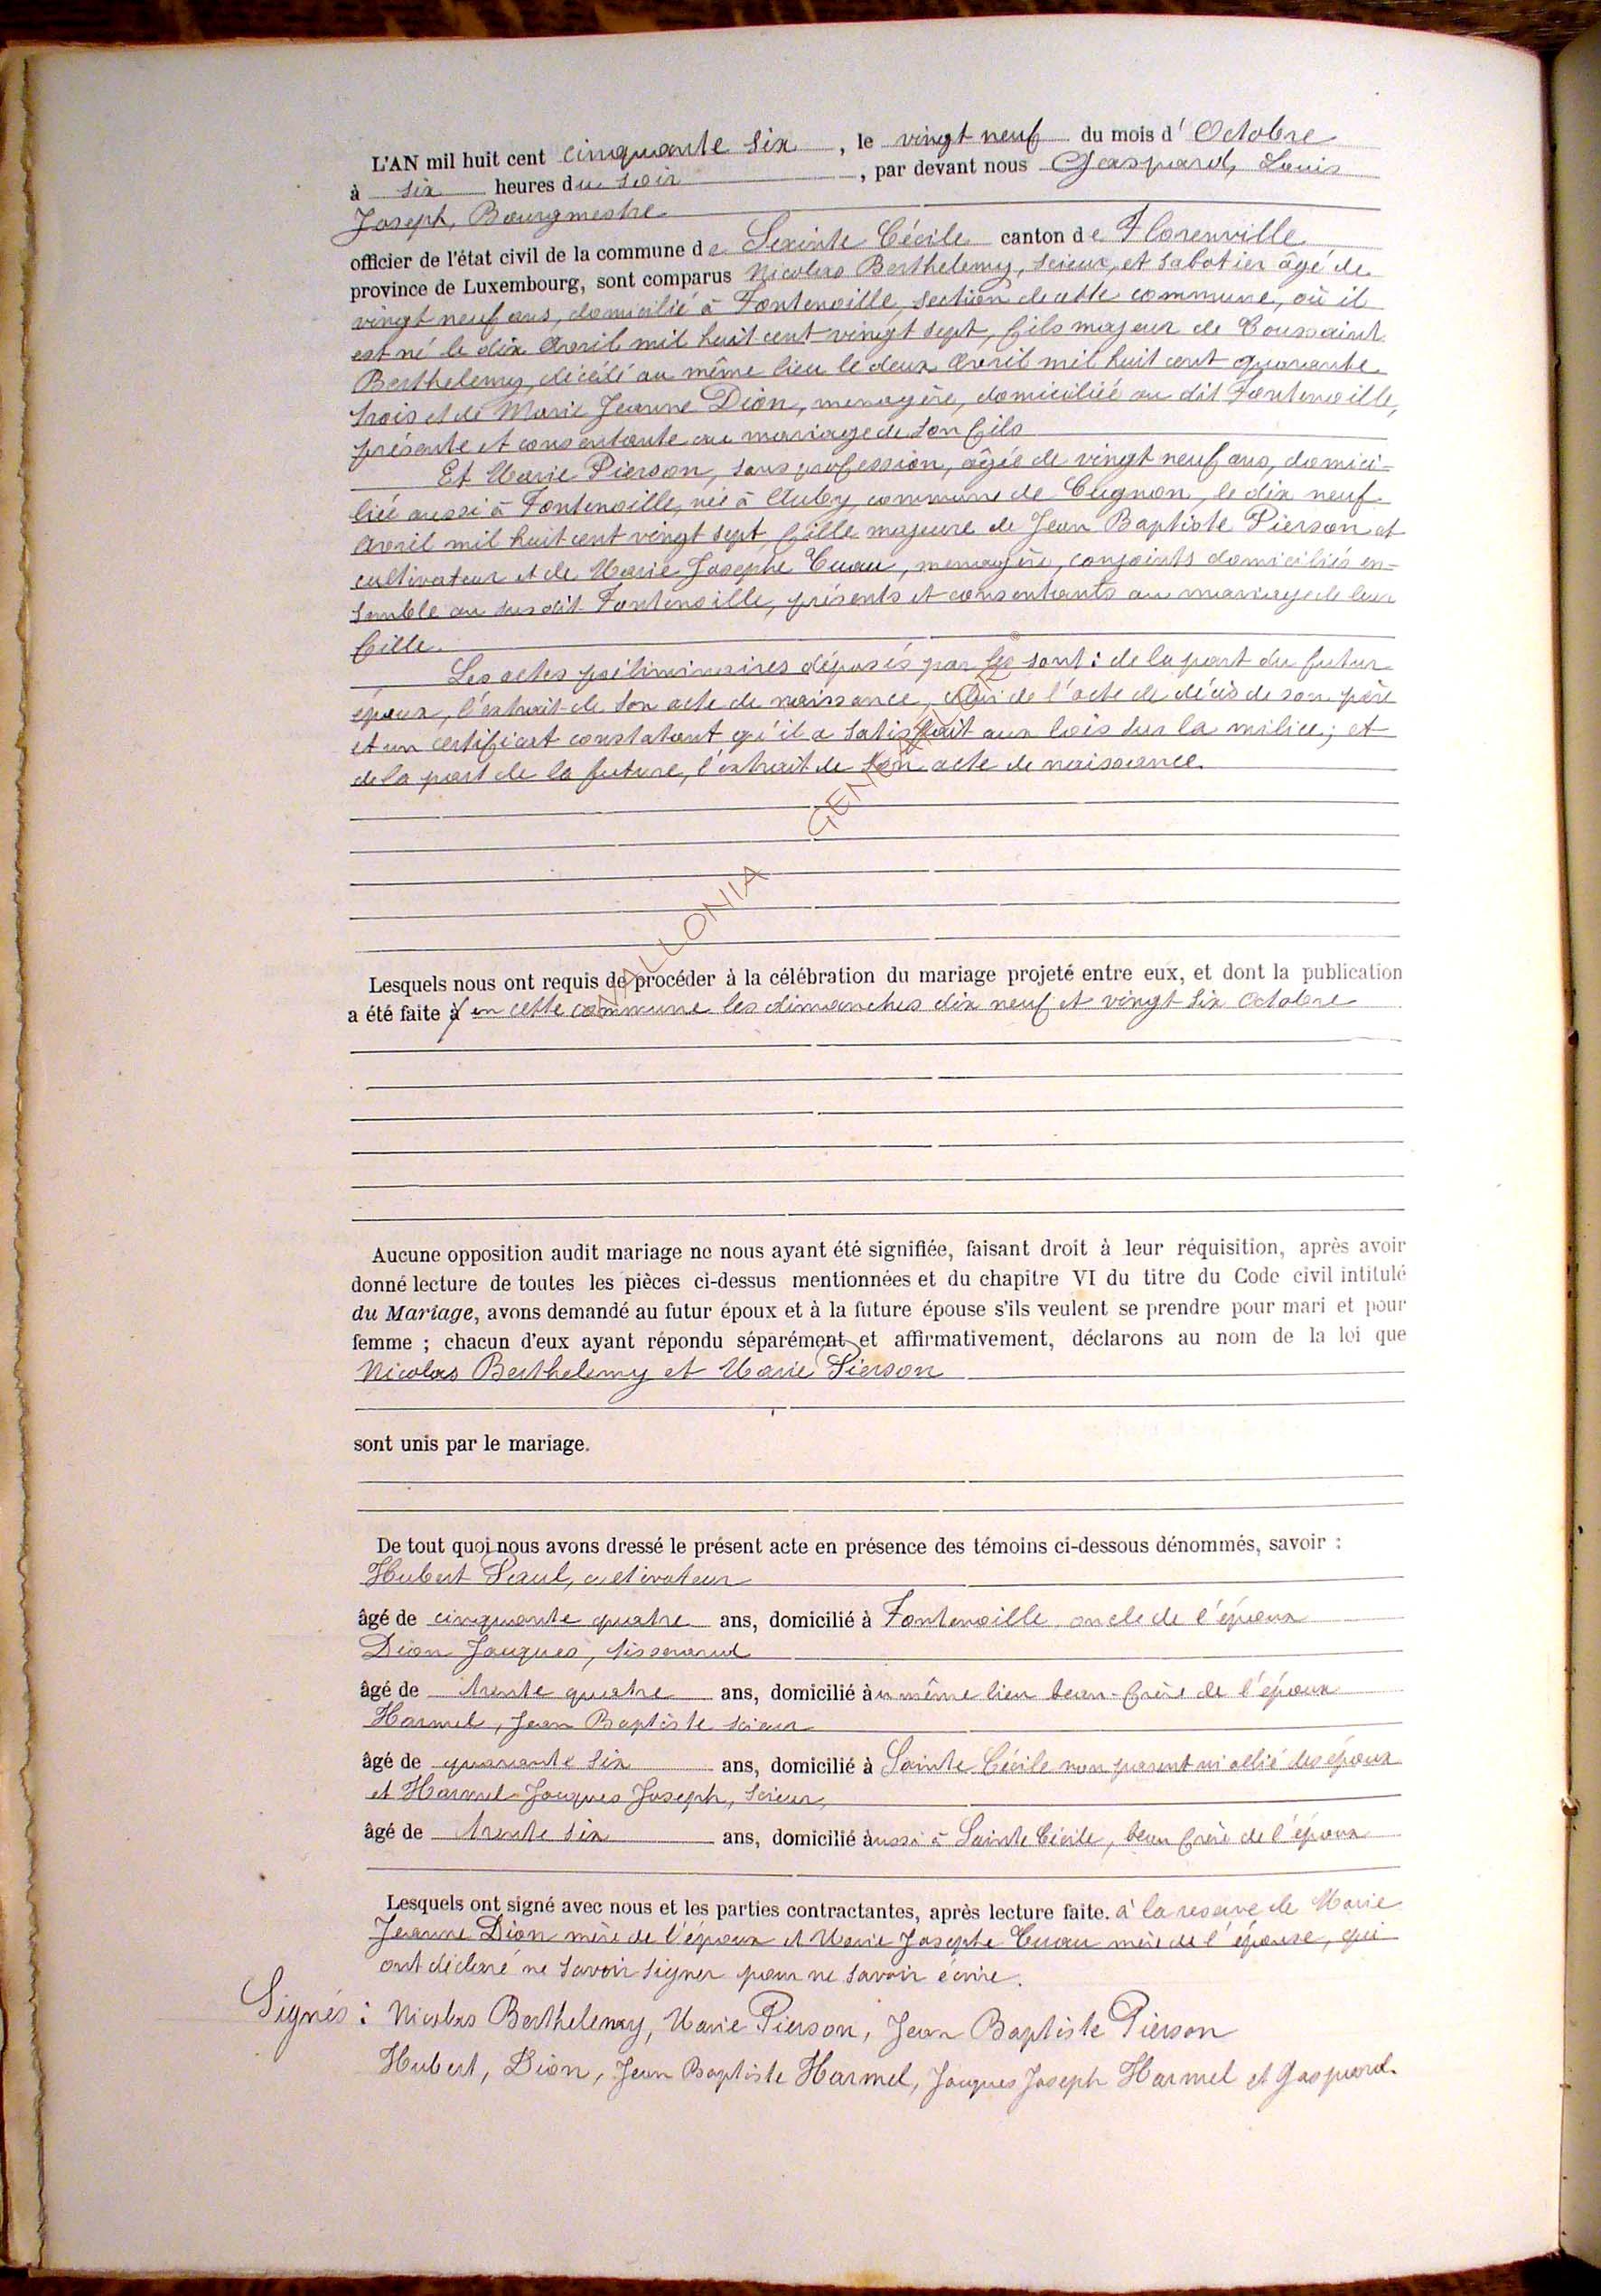 L'AN mil huit cent cinquante six, le vingt neuf du mois d'Octobre
à six heures du soir, par devant nous Gaspard, Louis
Joseph, Bourgmestre
officier de l'état civil de la commune de Sainte Cécile canton de Florenville
province de Luxembourg, sont comparus Nicolas Berthelemy, scieur, et sabotier âgé de
vingt neuf ans, domicilié à Fontenoille, section de cette commune, où il
est né le dix Avril mil huit cent vingt sept, fils majeur de Toussaint
Berthelemy, décédé au même lieu le deux Avril mil huit cent quarante
trois et de Marie Jeanne Dion, menagère, domiciliée au dit Fontenoille,
présente et consentante au mariage de son fils
Et Marie Pierson, sans profession, âgée de vingt neuf ans, domici=
liée aussi à Fontenoille, née à Auby, commune de Cugnon, le dix neuf
Avril mil huit cent vingt sept, fille majeure de Jean Baptiste Pierson et
cultivateur et de Marie Josephe Cuau, menagère, conjoints domiciliés en=
semble au susdit Fontenoille, présents et consentants au mariage de leur
fille.
Les actes préliminaires déposés par les sont : de la part du futur
époux, l'extrait de son acte de naissance, celui de l'acte de décès de son père
et un certificat constatant qu'il a satisfait aux lois sur la milice ; et
de la part de la future, l'extrait de son acte de naissance.
WALLONIA GENEALOGY ®
Lesquels nous ont requis de procéder à la célébration du mariage projeté entre eux, et dont la publication
a été faite à en cette commune les dimanches dix neuf et vingt six Octobre
Aucune opposition audit mariage ne nous ayant été signifiée, faisant droit à leur réquisition, après avoir
donné lecture de toutes les pièces ci-dessus mentionnées et du chapitre VI du titre du Code civil intitulé
du Mariage, avons demandé au futur époux et à la future épouse s'ils veulent se prendre pour mari et pour
femme ; chacun d'eux ayant répondu séparément et affirmativement, déclarons au nom de la loi que
Nicolas Berthelemy et Marie Pierson
sont unis par le mariage.
De tout quoi nous avons dressé le présent acte en présence des témoins ci-dessous dénommés, savoir :
Hubert Paul, cultivateur
âgé de cinquante quatre ans, domicilié à Fontenoille oncle de l'époux
Dion Jacques, tisserand
âgé de trente quatre ans, domicilié au même lieu beau-frère de l'époux
Harmel, Jean Baptiste scieur
âgé de quarante six ans, domicilié à Sainte Cécile non parent ni allié des époux
et Harmel Jacques Joseph, scieur,
âgé de trente six ans, domicilié aussi à Sainte Cécile, beau frère de l'époux
Lesquels ont signé avec nous et les parties contractantes, après lecture faite. à la reserve de Marie
Jeanne Dion mère de l'époux et Marie Josephe Cuau mère de l'épouse, qui
ont déclaré ne savoir signer pour ne savoir écrire.
Signés : Nicolas Berthelemy, Marie Pierson, Jean Baptiste Pierson
Hubert, Dion, Jean Baptiste Harmel, Jacques Joseph Harmel et Gaspard.